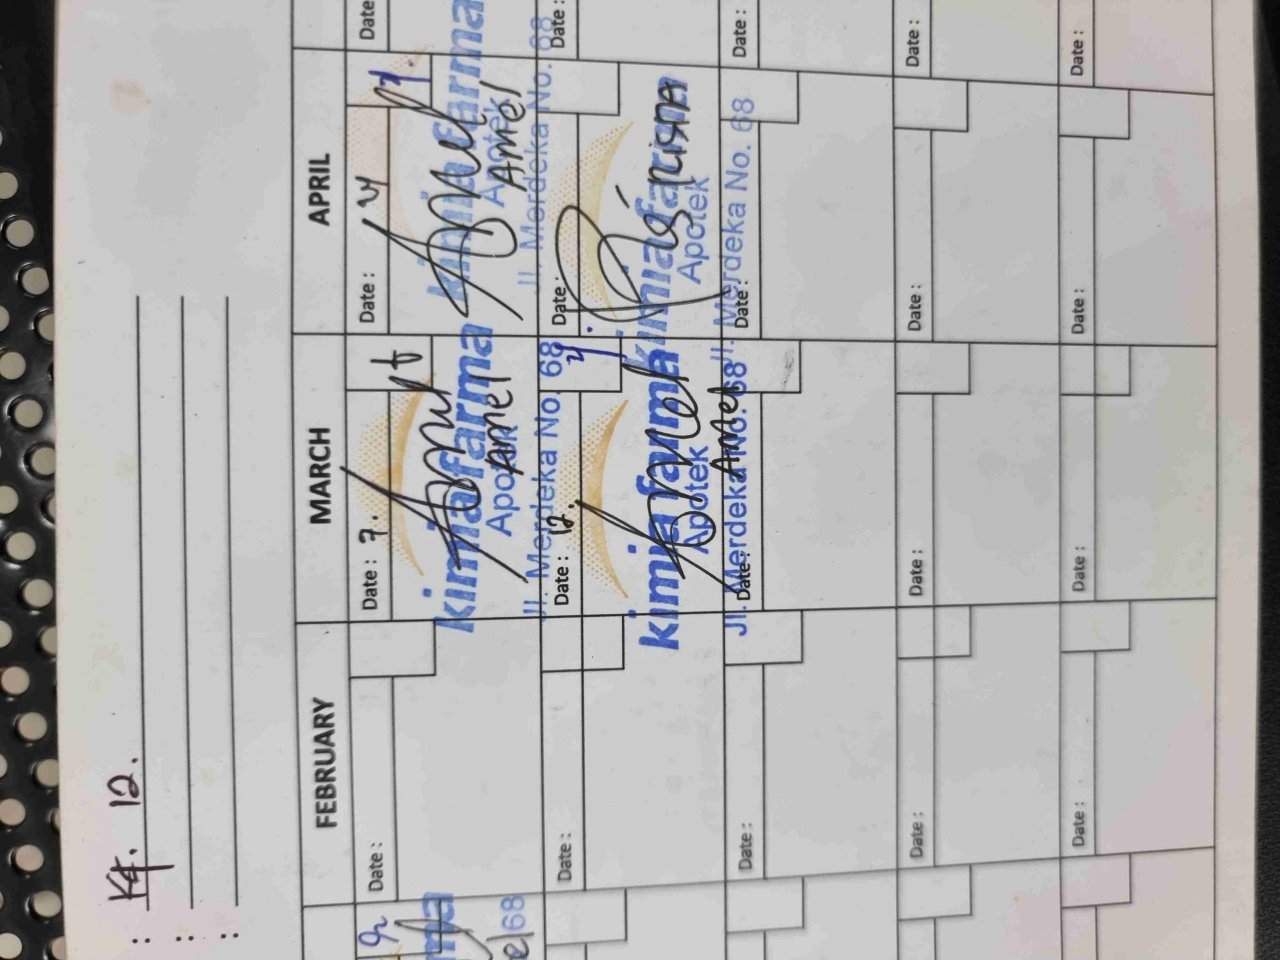 : KF. 12.
:
:
FEBRUARY
MARCH
APRIL
Date :
Date : 7.
Date :
Date :
kimiafarma
Apotek
Amel
Jl. Merdeka No. 68
kimiafarma
Apotek
Amel
Jl. Merdeka No. 68
68
Date :
Date : 12.
Date :
Date :
kimiafarma
Apotek
Amel
Jl. Merdeka No. 68
kimiafarma
Apotek
Jl. Merdeka No. 68
Date :
Date :
Date :
Date :
Date :
Date :
Date :
Date :
Date :
Date :
Date :
Date :